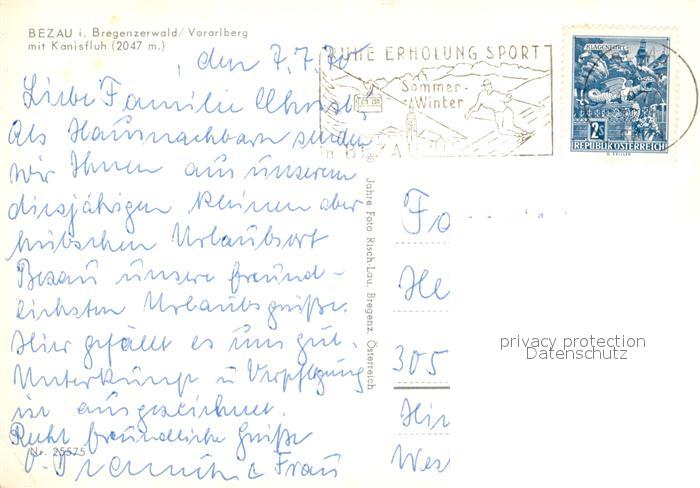 BEZAU i. Bregenzerwald/Vorarlberg
mit Kanisfluh (2047 m.)
, den 7.7.70
Liebe Familie
Als Hausnachbarn senden
wir Ihnen aus unserem
diesjährigen kleinen aber
hübschen Urlaubsort
Bezau unsere freund-
lichsten Urlaubsgrüße.
Hier gefällt es uns gut.
Unterkunft u Verpflegung
ist ausgezeichnet.
Recht freundliche Grüße
Frau
Nr. 25575
RUHE ERHOLUNG SPORT
Sommer-
Winter
in BEZAU
KLAGENFURT
2S
REPUBLIK ÖSTERREICH
Jahre Foto Risch-Lau, Bregenz, Österreich
Fa
He
305
Hin
Wes
privacy protection
Datenschutz